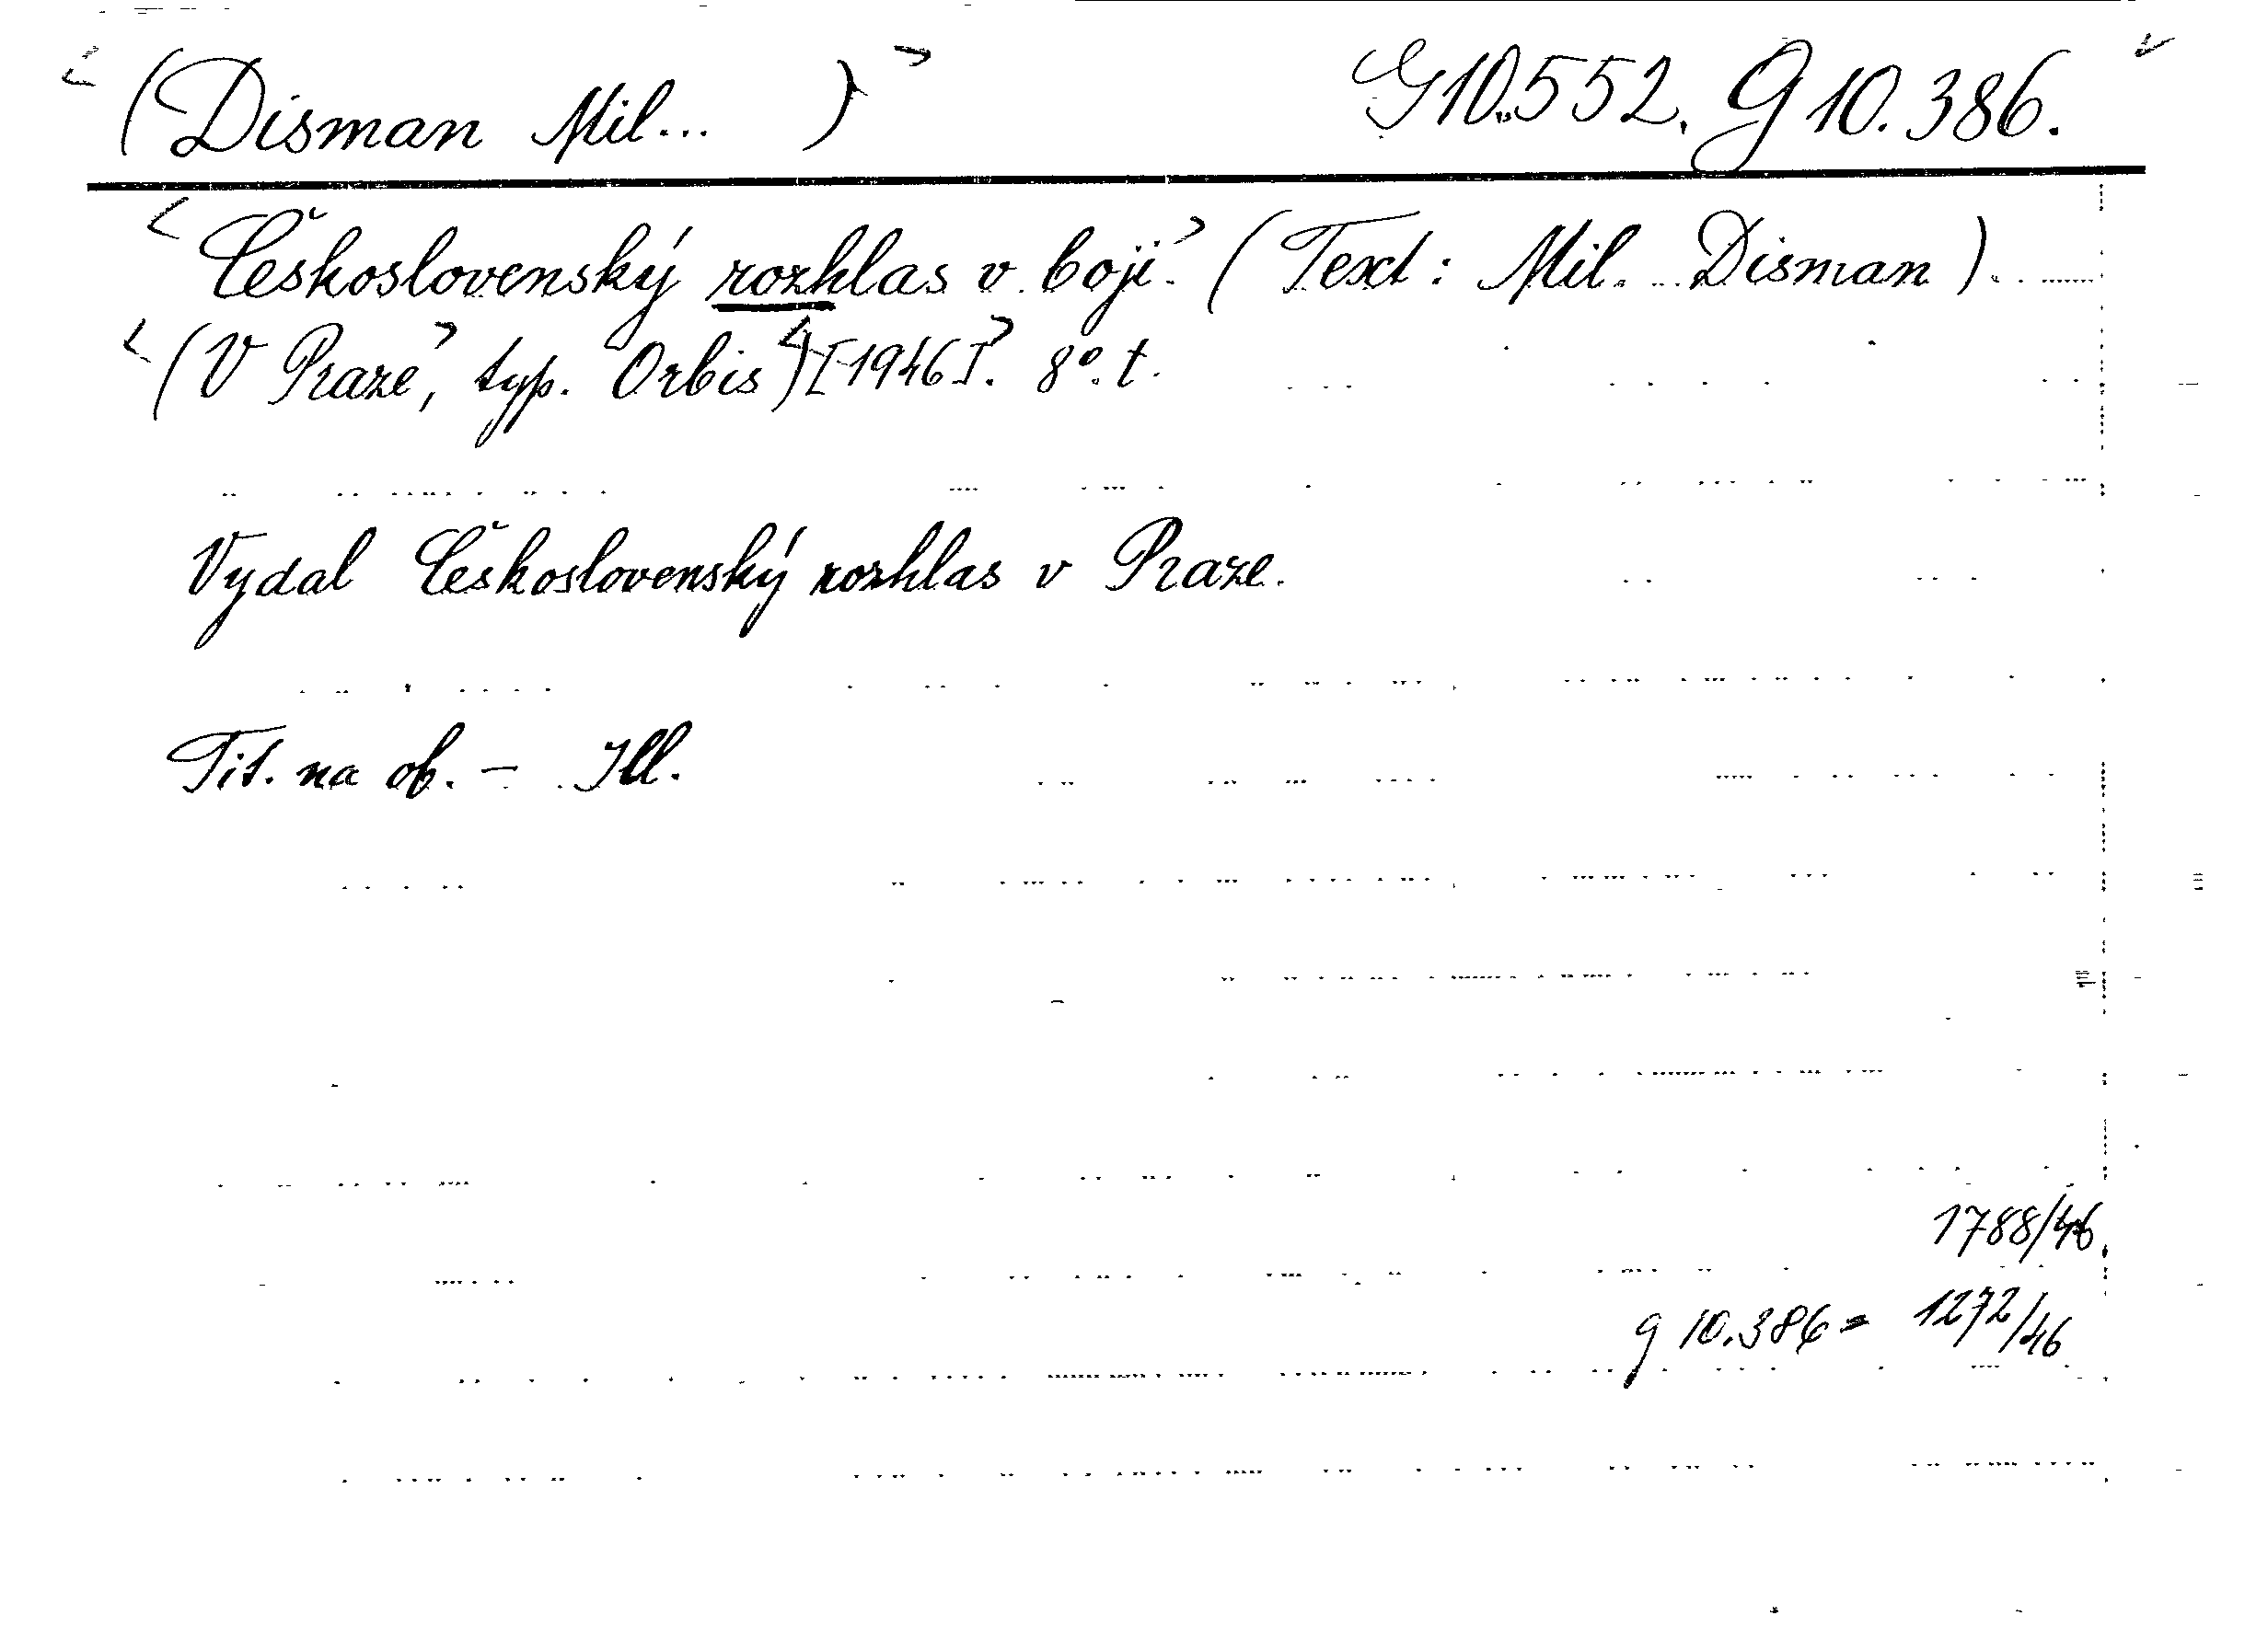 (Disman Mil... ) G10.552. G 10.386.
Československý rozhlas v boji. (Text: Mil. Disman).
(V Praze, typ. Orbis) [1946]. 8°. t.
Vydal Československý rozhlas v Praze.
Tit. na ob. - Ill.
1788/46.
g 10.386 = 1272/46